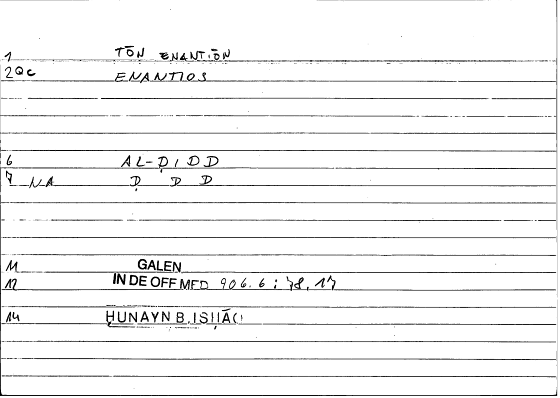 1 TŌN ENANTIŌN
2 Qc ENANTIOS
6 AL-ḌIDD
7 NA Ḍ D D
11 GALEN
12 IN DE OFF MED 906.6 : 78,17
14 ḤUNAYN B. ISḤĀQ